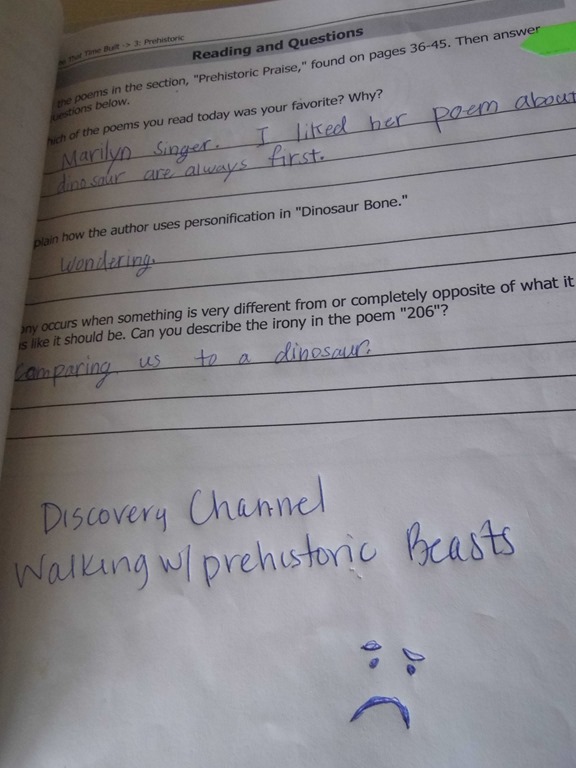 That Time Built -> 3: Prehistoric
Reading and Questions
the poems in the section, "Prehistoric Praise," found on pages 36-45. Then answer
uestions below.
hich of the poems you read today was your favorite? Why?
Marilyn Singer. I liked her poem about
dinosaur are always first.
plain how the author uses personification in "Dinosaur Bone."
Wondering.
ony occurs when something is very different from or completely opposite of what it
s like it should be. Can you describe the irony in the poem "206"?
Comparing us to a dinosaur.
Discovery Channel
Walking w/ prehistoric Beasts